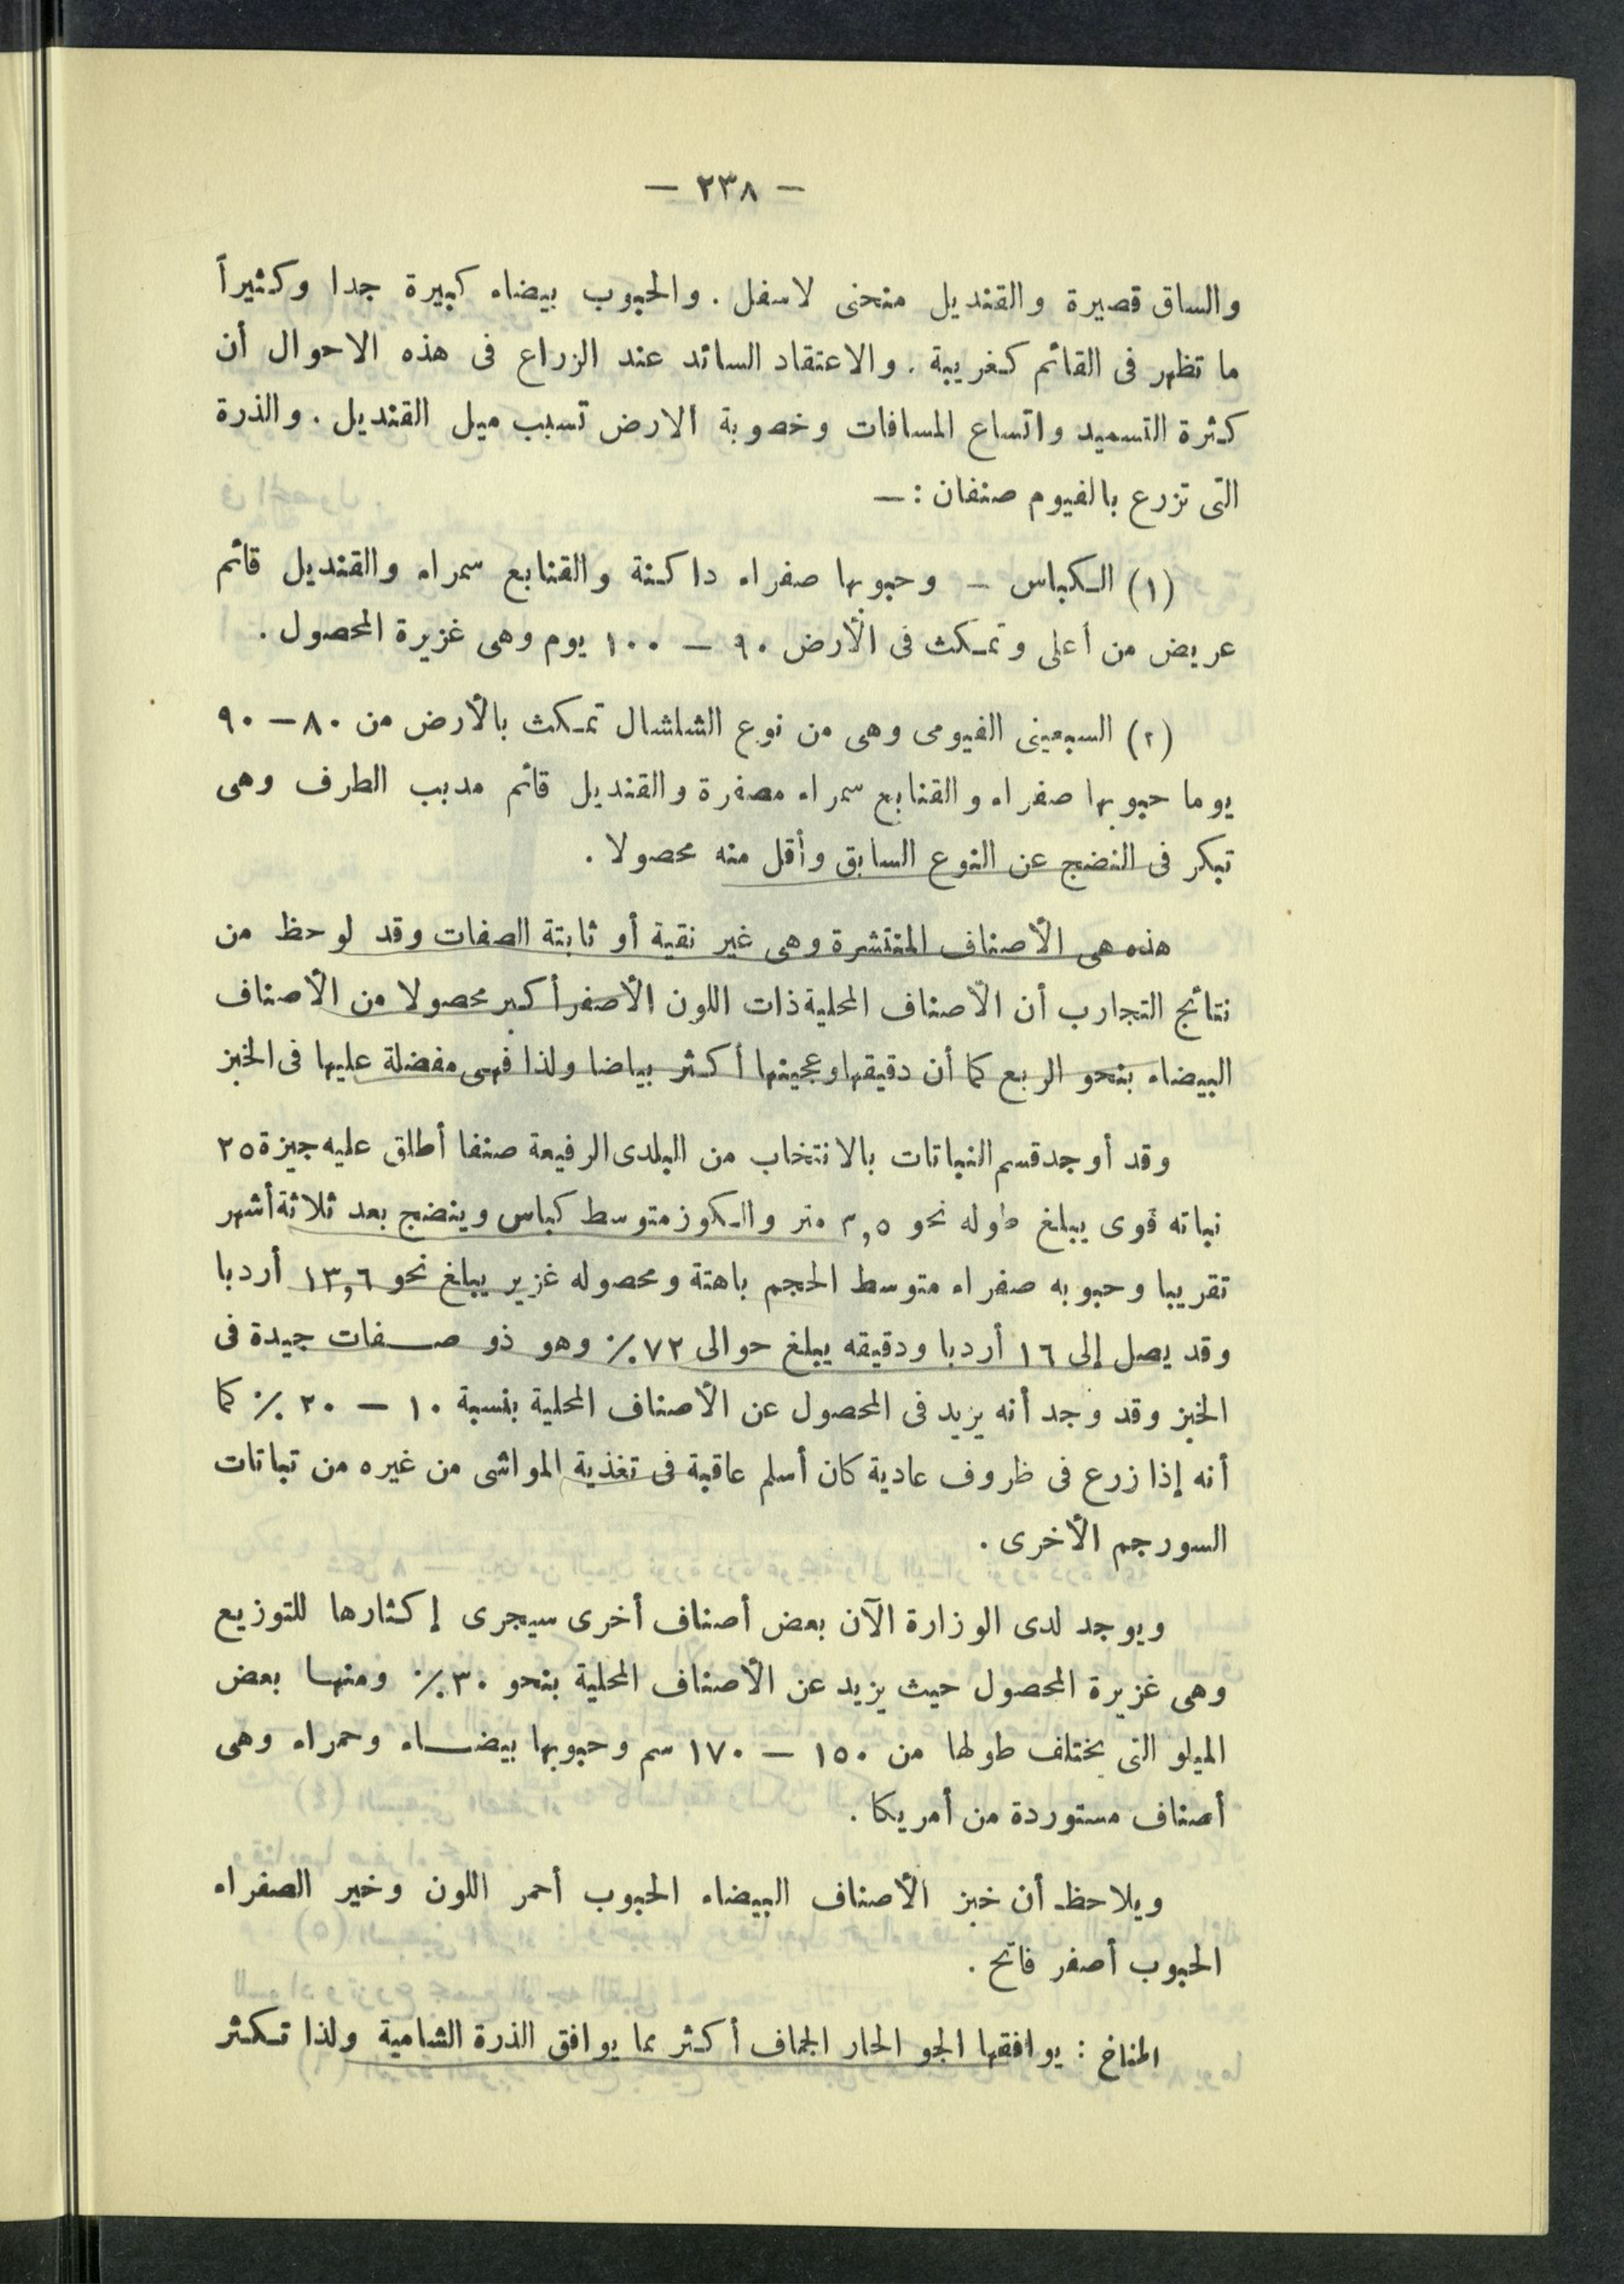 — ٢٣٨ —
والساق قصيرة والقنديل منحنى لاسفل . والحبوب بيضاء كبيرة جدا وكثيراً
ما تظهر فى القائم كغريبة . والاعتقاد السائد عند الزراع فى هذه الاحوال أن
كثرة التسميد واتساع المسافات وخصوبة الارض تسبب ميل القنديل . والذرة
التى تزرع بالفيوم صنفان : —
(١) الكباس — وحبوبها صفراء داكنة والقنابع سمراء والقنديل قائم
عريض من أعلى وتمكث فى الأرض ٩٠ — ١٠٠ يوم وهى غزيرة المحصول .
(٢) السبعينى الفيومى وهى من نوع الشلشال تمكث بالأرض من ٨٠ — ٩٠
يوما حبوبها صفراء والقنابع سمراء مصفرة والقنديل قائم مدبب الطرف وهى
تبكر فى النضج عن النوع السابق وأقل منه محصولا .
هذه هى الأصناف المنتشرة وهى غير نقية أو ثابتة الصفات وقد لوحظ من
نتائج التجارب أن الأصناف المحلية ذات اللون الأصفر أكبر محصولا من الأصناف
البيضاء بنحو الربع كما أن دقيقها وعجينها أكثر بياضا ولذا فهى مفضلة عليها فى الخبز
وقد أوجد قسم النباتات بالانتخاب من البلدى الرفيعة صنفا أطلق عليه جيزة ٢٥
نباته قوى يبلغ طوله نحو ٣,٥ متر والكوز متوسط كباس وينضج بعد ثلاثة أشهر
تقريبا وحبوبه صفراء متوسط الحجم باهتة ومحصوله غزير يبلغ نحو ١٣,٦ أردبا
وقد يصل إلى ١٦ أردبا ودقيقه يبلغ حوالى ٧٢ ٪ وهو ذو صفات جيدة فى
الخبز وقد وجد أنه يزيد فى المحصول عن الأصناف المحلية بنسبة ١٠ — ٢٠ ٪ كما
أنه إذا زرع فى ظروف عادية كان أسلم عاقبة فى تغذية المواشى من غيره من تباتات
السورجم الأخرى .
ويوجد لدى الوزارة الآن بعض أصناف أخرى سيجرى إكثارها للتوزيع
وهى غزيرة المحصول حيث يزيد عن الأصناف المحلية بنحو ٣٠ ٪ ومنها بعض
الميلو التى يختلف طولها من ١٥٠ — ١٧٠ سم وحبوبها بيضاء وحمراء وهى
أصناف مستوردة من أمريكا .
ويلاحظ أن خبز الأصناف البيضاء الحبوب أحمر اللون وخير الصفراء
الحبوب أصفر فاتح .
المناخ : يوافقها الجو الحار الجاف أكثر مما يوافق الذرة الشامية ولذا تكثر